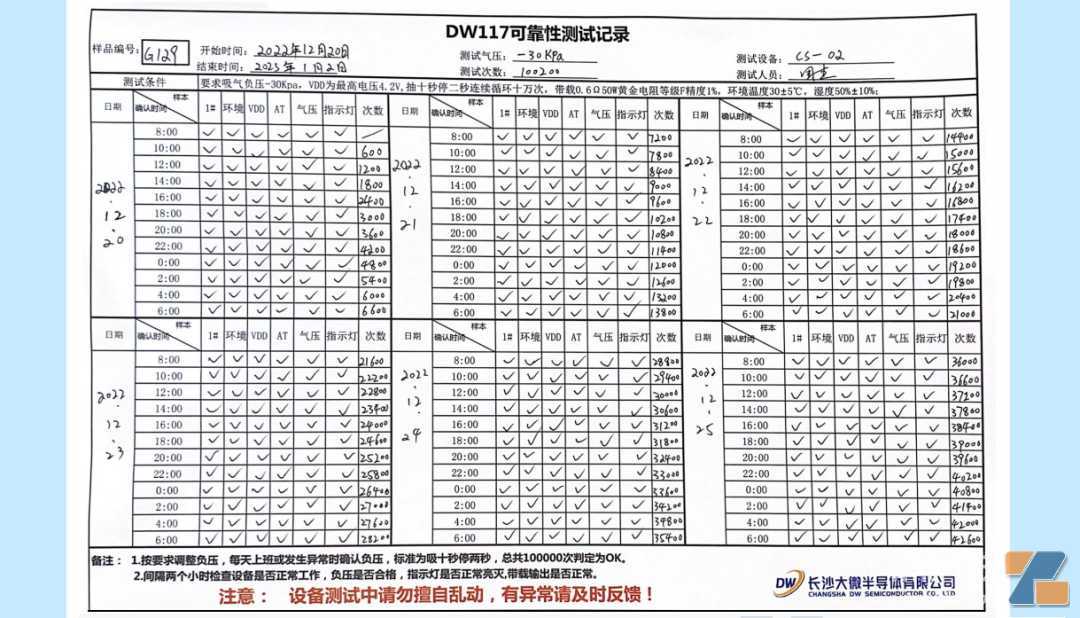 DW117可靠性测试记录
样品编号: G129 开始时间: 2022年12月20日 测试气压: -30KPa 测试设备: CS-02
结束时间: 2023年1月2日 测试次数: 100200 测试人员:
测试条件 要求吸气负压-30Kpa，VDD为最高电压4.2V,抽十秒停二秒连续循环十万次，带载0.6Ω50W黄金电阻等级F精度1%，环境温度30±5℃，湿度50%±10%;
日期 样本 确认时间 1# 环境 VDD AT 气压 指示灯 次数 日期 样本 确认时间 1# 环境 VDD AT 气压 指示灯 次数 日期 样本 确认时间 1# 环境 VDD AT 气压 指示灯 次数
2022.12.20 2022.12.21 2022.12.22
8:00 — 8:00 7200 8:00 14400
10:00 600 10:00 7800 10:00 15000
12:00 1200 12:00 8400 12:00 15600
14:00 1800 14:00 9000 14:00 16200
16:00 2400 16:00 9600 16:00 16800
18:00 3000 18:00 10200 18:00 17400
20:00 3600 20:00 10800 20:00 18000
22:00 4200 22:00 11400 22:00 18600
0:00 4800 0:00 12000 0:00 19200
2:00 5400 2:00 12600 2:00 19800
4:00 6000 4:00 13200 4:00 20400
6:00 6600 6:00 13800 6:00 21000
日期 样本 确认时间 1# 环境 VDD AT 气压 指示灯 次数 日期 样本 确认时间 1# 环境 VDD AT 气压 指示灯 次数 日期 样本 确认时间 1# 环境 VDD AT 气压 指示灯 次数
2022.12.23 2022.12.24 2022.12.25
8:00 21600 8:00 28800 8:00 36000
10:00 22200 10:00 29400 10:00 36600
12:00 22800 12:00 30000 12:00 37200
14:00 23400 14:00 30600 14:00 37800
16:00 24000 16:00 31200 16:00 38400
18:00 24600 18:00 31800 18:00 39000
20:00 25200 20:00 32400 20:00 39600
22:00 25800 22:00 33000 22:00 40200
0:00 26400 0:00 33600 0:00 40800
2:00 27000 2:00 34200 2:00 41400
4:00 27600 4:00 34800 4:00 42000
6:00 28200 6:00 35400 6:00 42600
备注： 1.按要求调整负压，每天上班或发生异常时确认负压，标准为吸十秒停两秒，总共100000次判定为OK。
2.间隔两个小时检查设备是否正常工作，负压是否合格，指示灯是否正常亮灭,带载输出是否正常。
注意： 设备测试中请勿擅自乱动，有异常请及时反馈！
DW 长沙大微半导体有限公司
CHANGSHA DW SEMICONDUCTOR CO., LTD